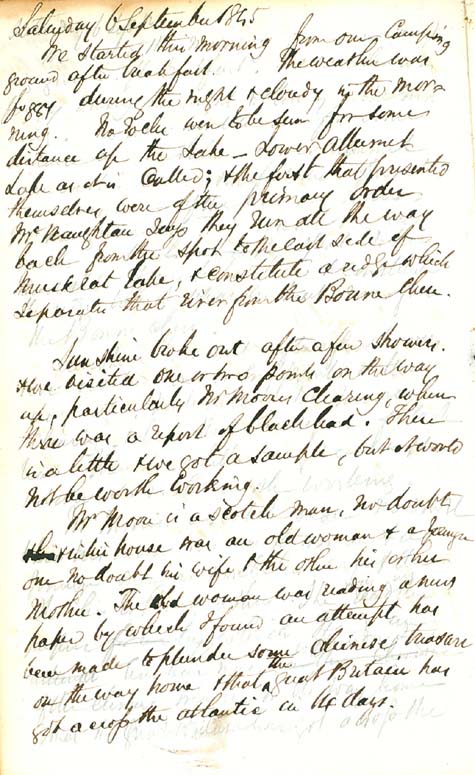 Saturday 6 September 1845
We started this morning from our Camping
ground after breakfast. The weather was
foggy during the night & cloudy in the mor-
ning. No rocks were to be seen for some
distance up the Lake – Lower Allumet
Lake as it is Called; & the first that presented
themselves were of the primary order
Mr Naughton says they run all the way
back from this spot to the east side of
Muskrat Lake, & constitute a ridge which
separates that river from the Bonne Chere.
Sun shine broke out after a few showers.
& we visited one or two points on the way
up, particularly Mr Moores Clearing, where
there was a report of black lead. There
is a little & we got a sample, but it would
not be worth working.
Mr Moore is a Scotch man, no doubt,
& in his house was an old woman & a younger
one no doubt his wife & the other his or her
Mother. The old woman was reading a news
paper by which I found an attempt has
been made to plunder some Chinese treasure
on the way home & that the Great Britain has
got across the atlantic in 14 days.